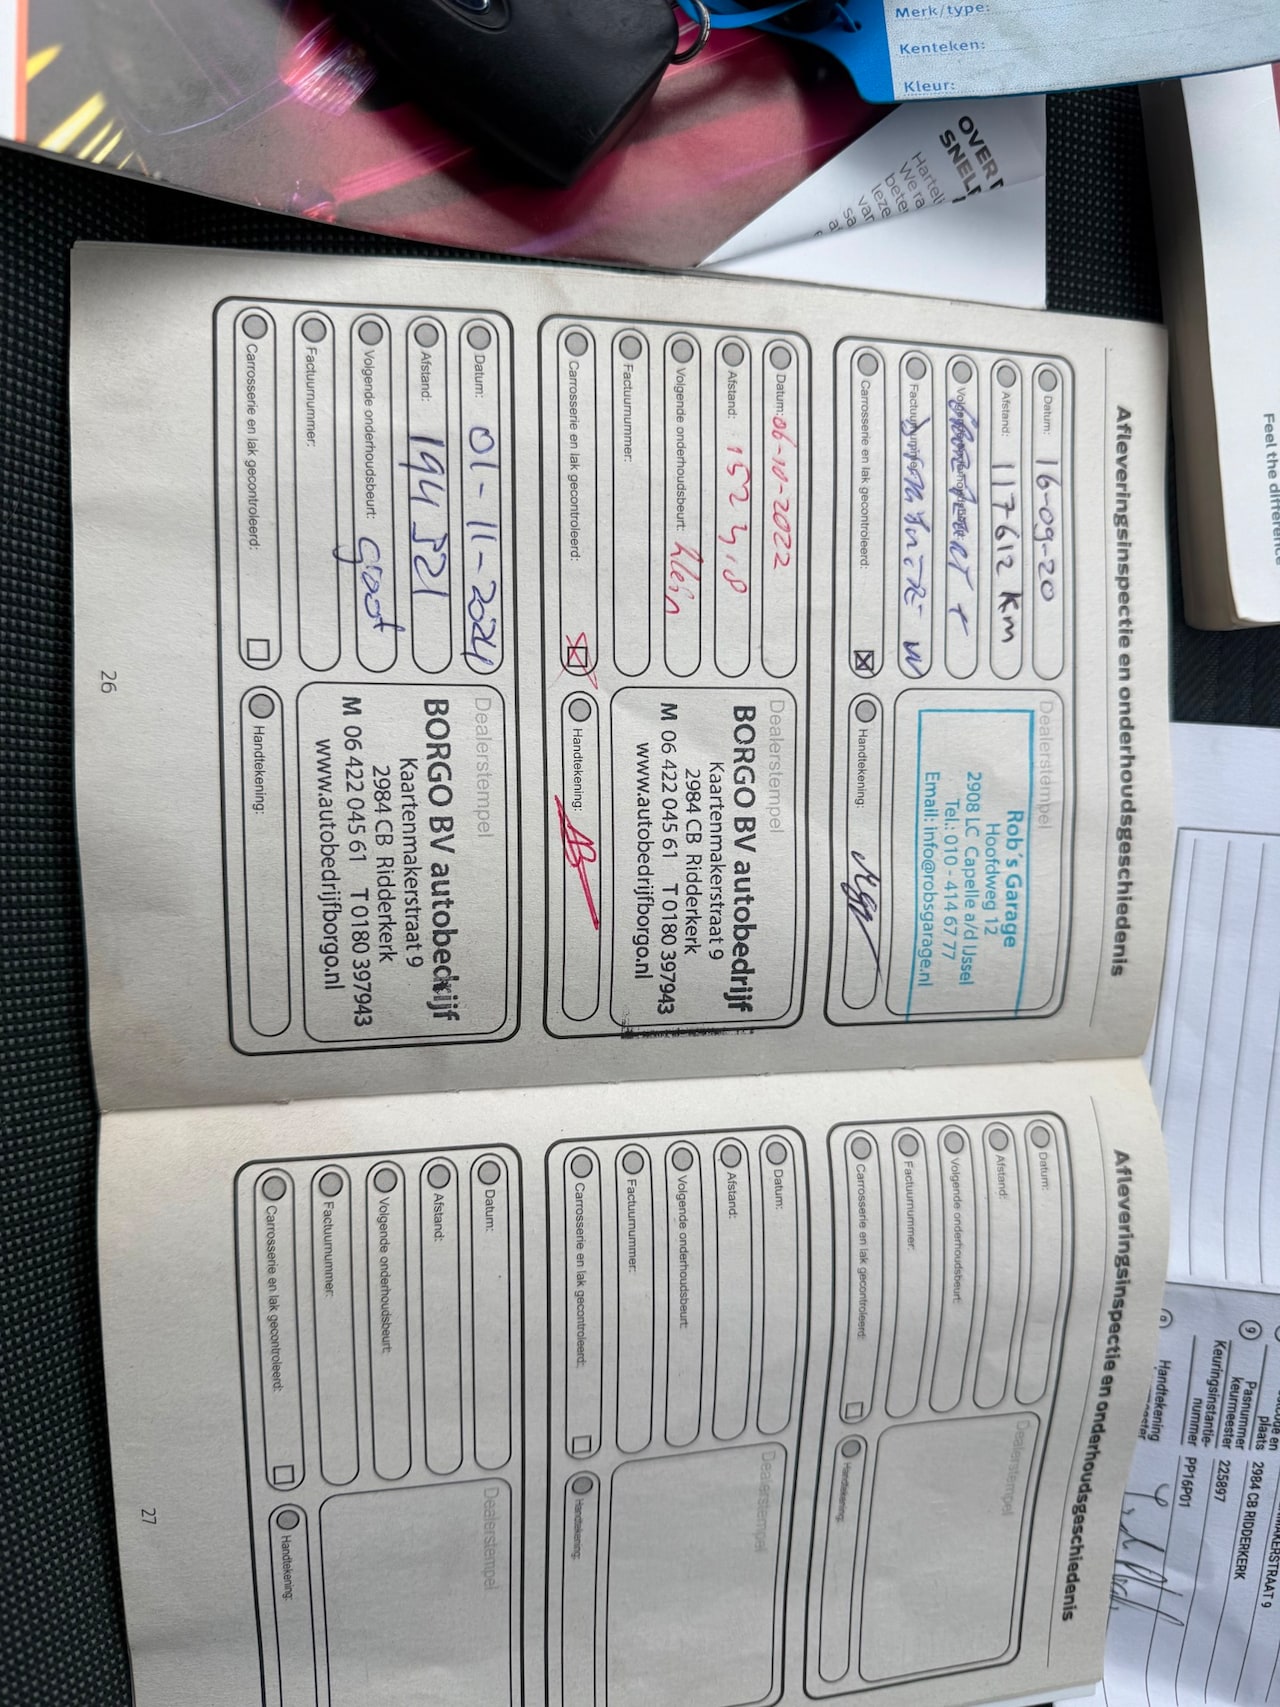 Merk/type:
Kenteken:
Kleur:
OVER
SNEL
Hartel
We ra
bete
leze
van
sa
Feel the difference
Afleveringsinspectie en onderhoudsgeschiedenis
Datum: 16-09-20
Afstand: 117612 Km
Volgende onderhoudsbeurt:
Factuurnummer:
Carrosserie en lak gecontroleerd:
Dealerstempel
Rob's Garage
Hoofdweg 12
2908 LC Capelle a/d IJssel
Tel.: 010 - 414 67 77
Email: info@robsgarage.nl
Handtekening:
Datum: 06-10-2022
Afstand:
Volgende onderhoudsbeurt: klein
Factuurnummer:
Carrosserie en lak gecontroleerd:
Dealerstempel
BORGO BV autobedrijf
Kaartenmakerstraat 9
2984 CB Ridderkerk
M 06 422 045 61 T 0180 397943
www.autobedrijfborgo.nl
Handtekening:
Datum: 01-11-2024
Afstand: 194321
Volgende onderhoudsbeurt: groot
Factuurnummer:
Carrosserie en lak gecontroleerd:
Dealerstempel
BORGO BV autobedrijf
Kaartenmakerstraat 9
2984 CB Ridderkerk
M 06 422 045 61 T 0180 397943
www.autobedrijfborgo.nl
Handtekening:
26
Afleveringsinspectie en onderhoudsgeschiedenis
Datum:
Afstand:
Volgende onderhoudsbeurt:
Factuurnummer:
Carrosserie en lak gecontroleerd:
Dealerstempel
Handtekening:
Datum:
Afstand:
Volgende onderhoudsbeurt:
Factuurnummer:
Carrosserie en lak gecontroleerd:
Dealerstempel
Handtekening:
Datum:
Afstand:
Volgende onderhoudsbeurt:
Factuurnummer:
Carrosserie en lak gecontroleerd:
Dealerstempel
Handtekening:
27
MAKERSTRAAT 9
plaats 2984 CB RIDDERKERK
9 Pasnummer
keurmeester 225897
Keuringsinstantie-
nummer PP16P01
Handtekening